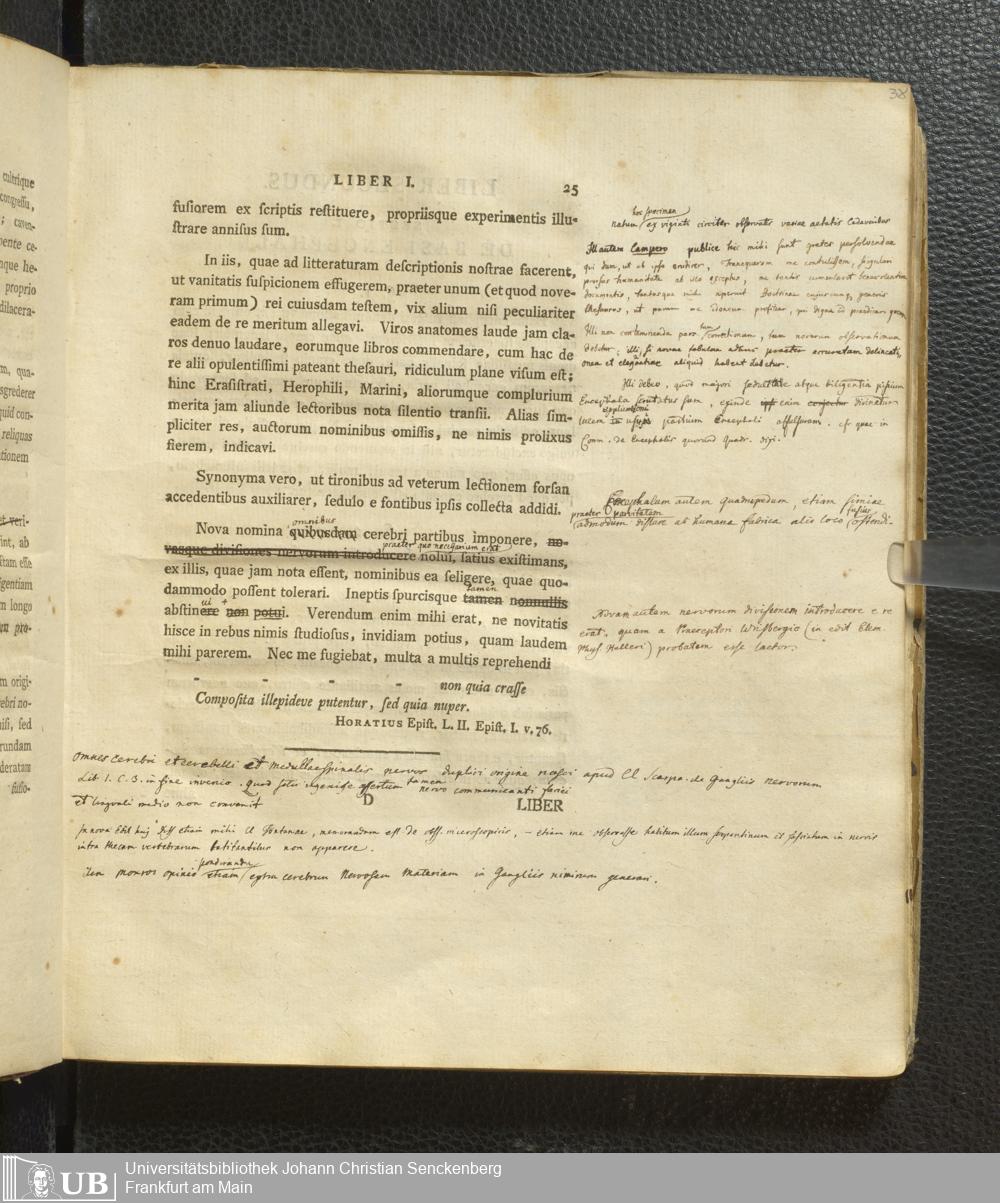 38
LIBER I.
25
fuſiorem ex ſcriptis reſtituere, propriisque experimentis illu-
ſtrare anniſus ſum.
In iis, quae ad litteraturam deſcriptionis noſtrae facerent,
ut vanitatis ſuſpicionem effugerem, praeter unum (et quod nove-
ram primum) rei cuiusdam teſtem, vix alium niſi peculiariter
eadem de re meritum allegavi. Viros anatomes laude jam cla-
ros denuo laudare, eorumque libros commendare, cum hac de
re alii opulentiſſimi pateant theſauri, ridiculum plane viſum eſt;
hinc Eraſiſtrati, Herophili, Marini, aliorumque complurium
merita jam aliunde lectoribus nota ſilentio tranſii. Alias ſim-
pliciter res, auctorum nominibus omiſſis, ne nimis prolixus
fierem, indicavi.
Synonyma vero, ut tironibus ad veterum lectionem forſan
accedentibus auxiliarer, ſedulo e fontibus ipſis collecta addidi.
omnibus
Nova nomina quibusdam cerebri partibus imponere, no-
praeter quo necessarium erat
vasque diviſiones nervorum introducere nolui, ſatius exiſtimans,
ex illis, quae jam nota eſſent, nominibus ea ſeligere, quae quo-
dammodo poſſent tolerari. Ineptis ſpurcisque tamen nonnullis
tamen
abſtinere non potui. Verendum enim mihi erat, ne novitatis
hisce in rebus nimis ſtudioſus, invidiam potius, quam laudem
mihi parerem. Nec me fugiebat, multa a multis reprehendi
- - - - non quia craſſe
Compoſita illepideve putentur, ſed quia nuper.
HORATIUS Epiſt. L. II. Epiſt. I. v. 76.
D
LIBER
hoc specimen
natum ex viginti circiter observatis variae aetatis cadaveribus
Ill autem Campero publice hic mihi sunt grates persolvendae
qui dum, ut ab ipso
me contulissem, singulari
prorsus humanitate ab eo exceptus,
mihi aperuit Doctrinae cujuscunq generis
thesauros, ut
me
profitear,
Illi non contemnenda pars
tum novarum observationum
debetur; illi, si novae tabulae adhuc praeter accuratam delineati
onem et elegantiae aliquid habent debetur.
Illi debeo, quod majori sedulitate atque diligentia piscium
Encephala scrutatus sum, exinde enim
lucem
partium Encephali
cfr quae in
Comm. de Encephalis quorund quadr. dixi.
Encephalum autem quadrupedum, etiam simiae
praeter parvitatem
fusius
admodum differre ab humana fabrica alio loco ostendi.
Novam autem nervorum divisionem introducere e re
erat, quam a Praeceptori Wrisbergio (in edit Elem
Phys Halleri) probatam esse laetor.
Omnes cerebri et cerebelli et medullae spinalis nervos duplici origine nasci apud Cl Scarpa. de Gangliis nervorum
Lib I. C. 3. in fine invenio. Quod
tamen nervo communicanti faciei
et linguali medio non convenit
In nova Edit huj Diss etiam mihi Cl Fontanae, memorandum est de obs. microscopiciis, – etiam me observasse habitum illum serpentinum et fasciatum in nervis
intra thecam vertebrarum latitantibus non apparere.
ponderanda
Monros opinio etiam extra cerebrum Nervosam Materiam in Gangliis nimirum generari.
cultrique
congreſſu,
; caven-
ce-
nque he-
proprio
dilacera-
m, qua-
sgrederer
quid con-
reliquas
et veri-
int, ab
ctam eſſe
gentiam
m longo
m origi-
ebri no-
niſi, ſed
rundam
deratam
fuſio-
UB
Universitätsbibliothek Johann Christian Senckenberg
Frankfurt am Main